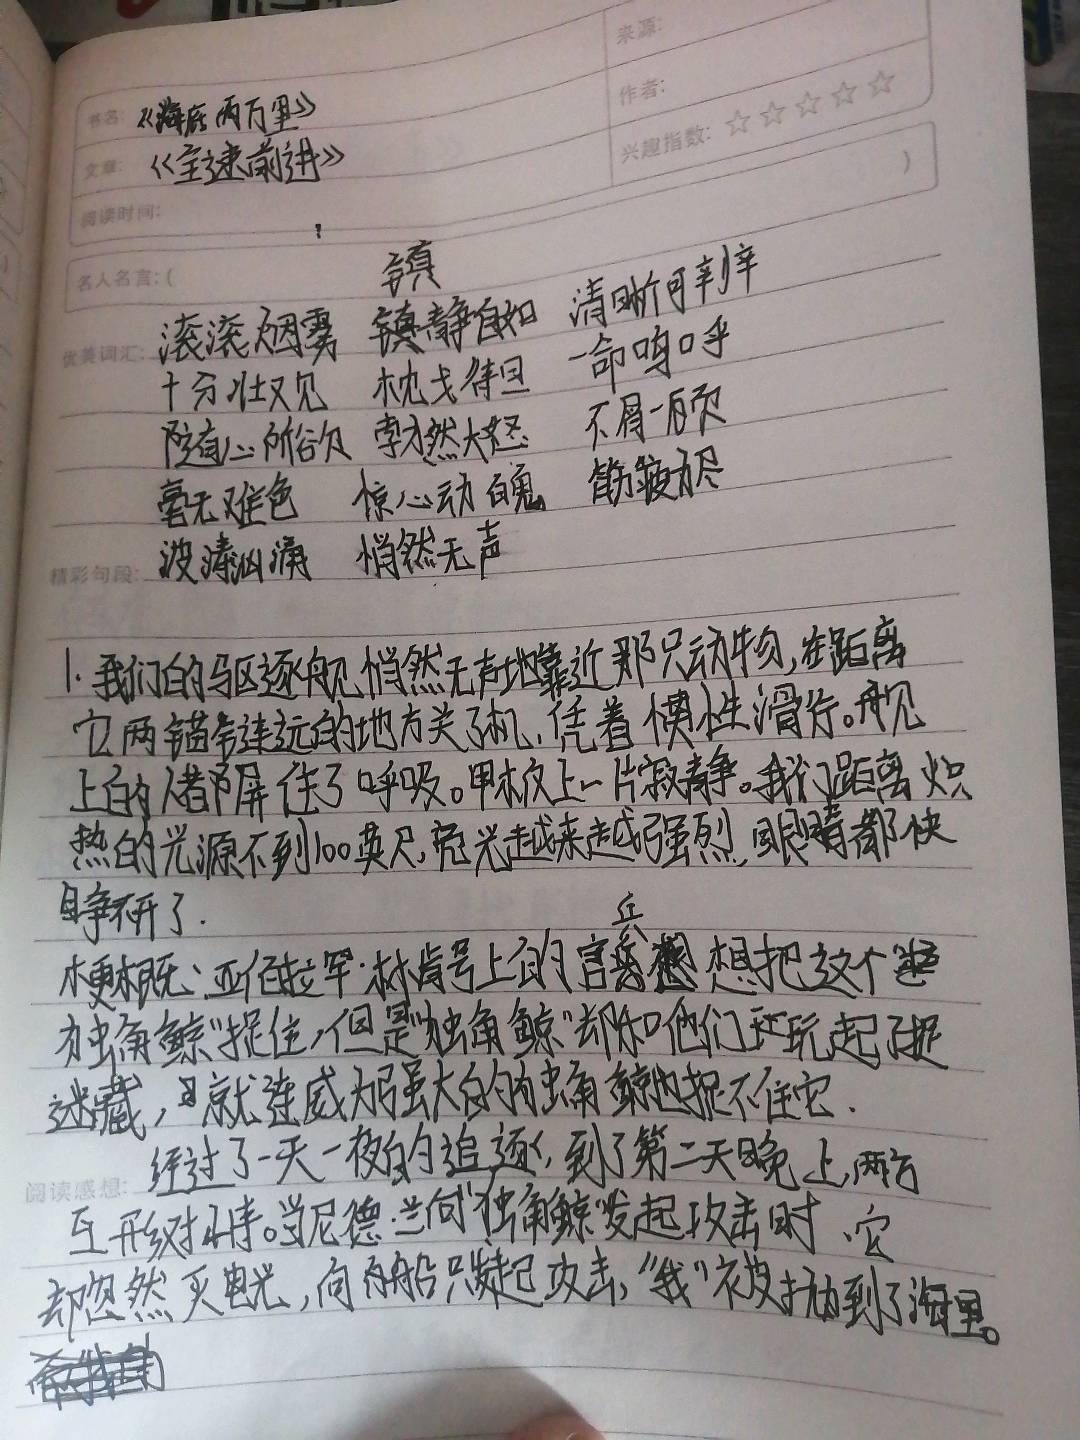 来源:
书名: 《海底两万里》
作者:
文章: 《全速前进》
兴趣指数: ☆☆☆☆☆
阅读时间:
名人名言:( )
镇
优美词汇: 滚滚烟雾 镇静自如 清晰可辨
十分壮观 枕戈待旦 一命呜呼
随心所欲 勃然大怒 不屑一顾
毫无难色 惊心动魄 筋疲力尽
精彩句段: 波涛汹涌 悄然无声
1.我们的驱逐舰悄然无声地靠近那只动物,在距离
它两锚链远的地方关了机,凭着惯性滑行。舰
上的人都屏住了呼吸。甲板上一片寂静。我们距离炽
热的光源不到100英尺,亮光越来越强烈,眼睛都快
睁不开了.
兵
梗概:亚伯拉罕·林肯号上的官 想把这个
独角鲸"捉住,但是"独角鲸"却和他们玩起了捉
迷藏,就连威力强大的独角鲸也捉不住它.
经过了一天一夜的追逐,到了第二天晚上,两方
阅读感想:
互形对峙。当尼德·兰向"独角鲸"发起攻击时,它
却忽然灭电光,向船只发起攻击,"我"被抛到了海里。